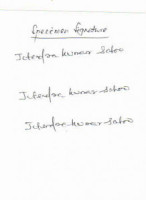 Specimen Signature
Jitendra Kumar Sahoo
Jitendra Kumar Sahoo
Jitendra Kumar Sahoo